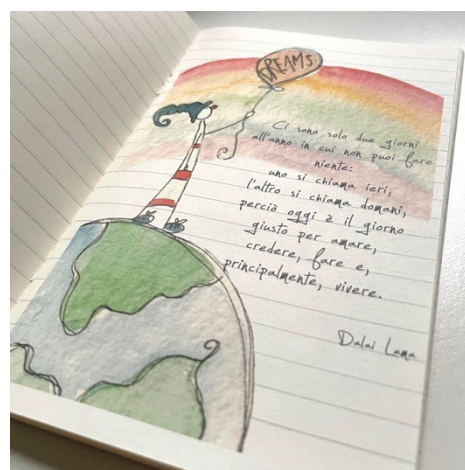 DREAMS
Ci sono solo due giorni
all'anno in cui non puoi fare
niente:
uno si chiama ieri,
l'altro si chiama domani,
perciò oggi è il giorno
giusto per amare,
credere, fare e,
principalmente, vivere.
Dalai Lama